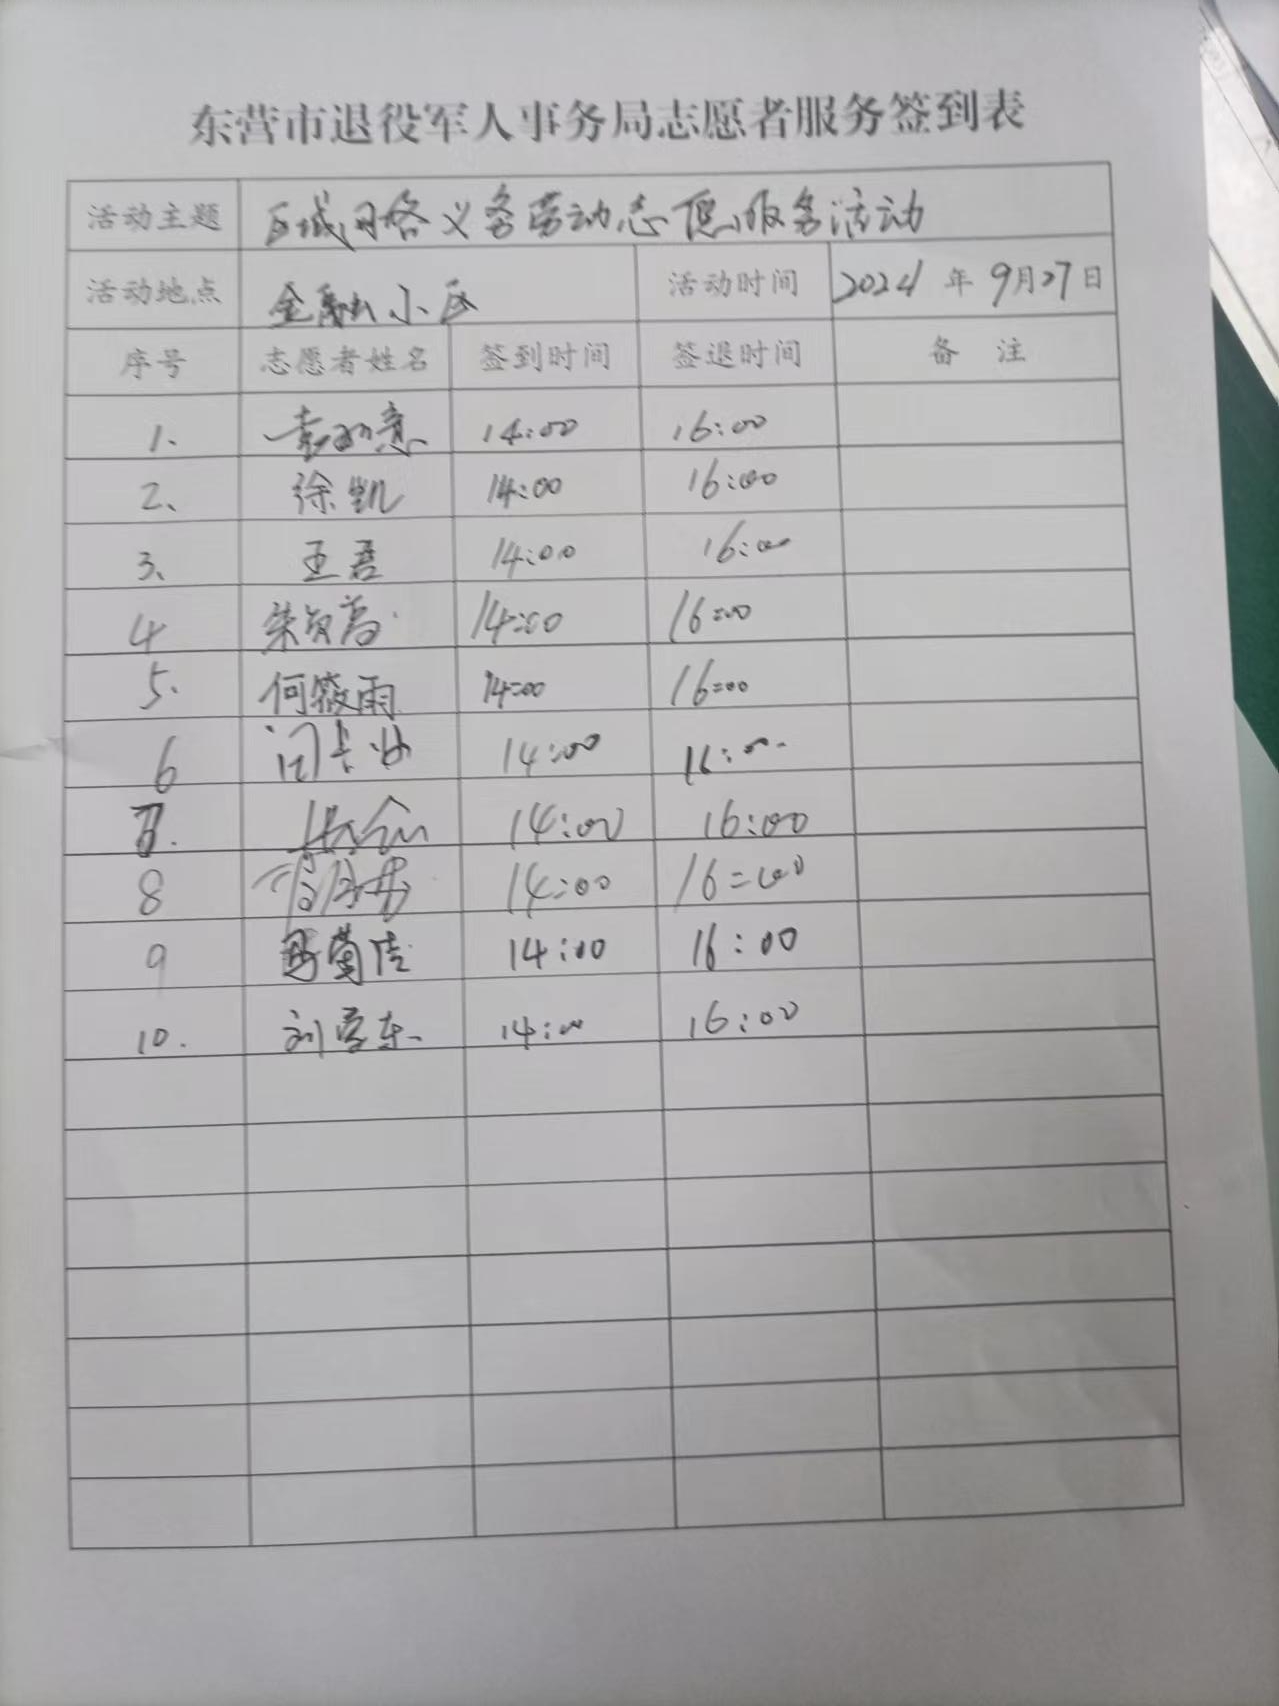 东营市退役军人事务局志愿者服务签到表
活动主题 区域网格义务劳动志愿服务活动
活动地点 金融小区 活动时间 2024年9月27日
序号 志愿者姓名 签到时间 签退时间 备注
1、 14:00 16:00
2、 徐凯 14:00 16:00
3、 王君 14:00 16:00
4 14:00 16:00
5. 何筱雨 14:00 16:00
6 14:00 16:00
7. 14:00 16:00
8 14:00 16:00
9 14:00 16:00
10. 刘营东 14:00 16:00